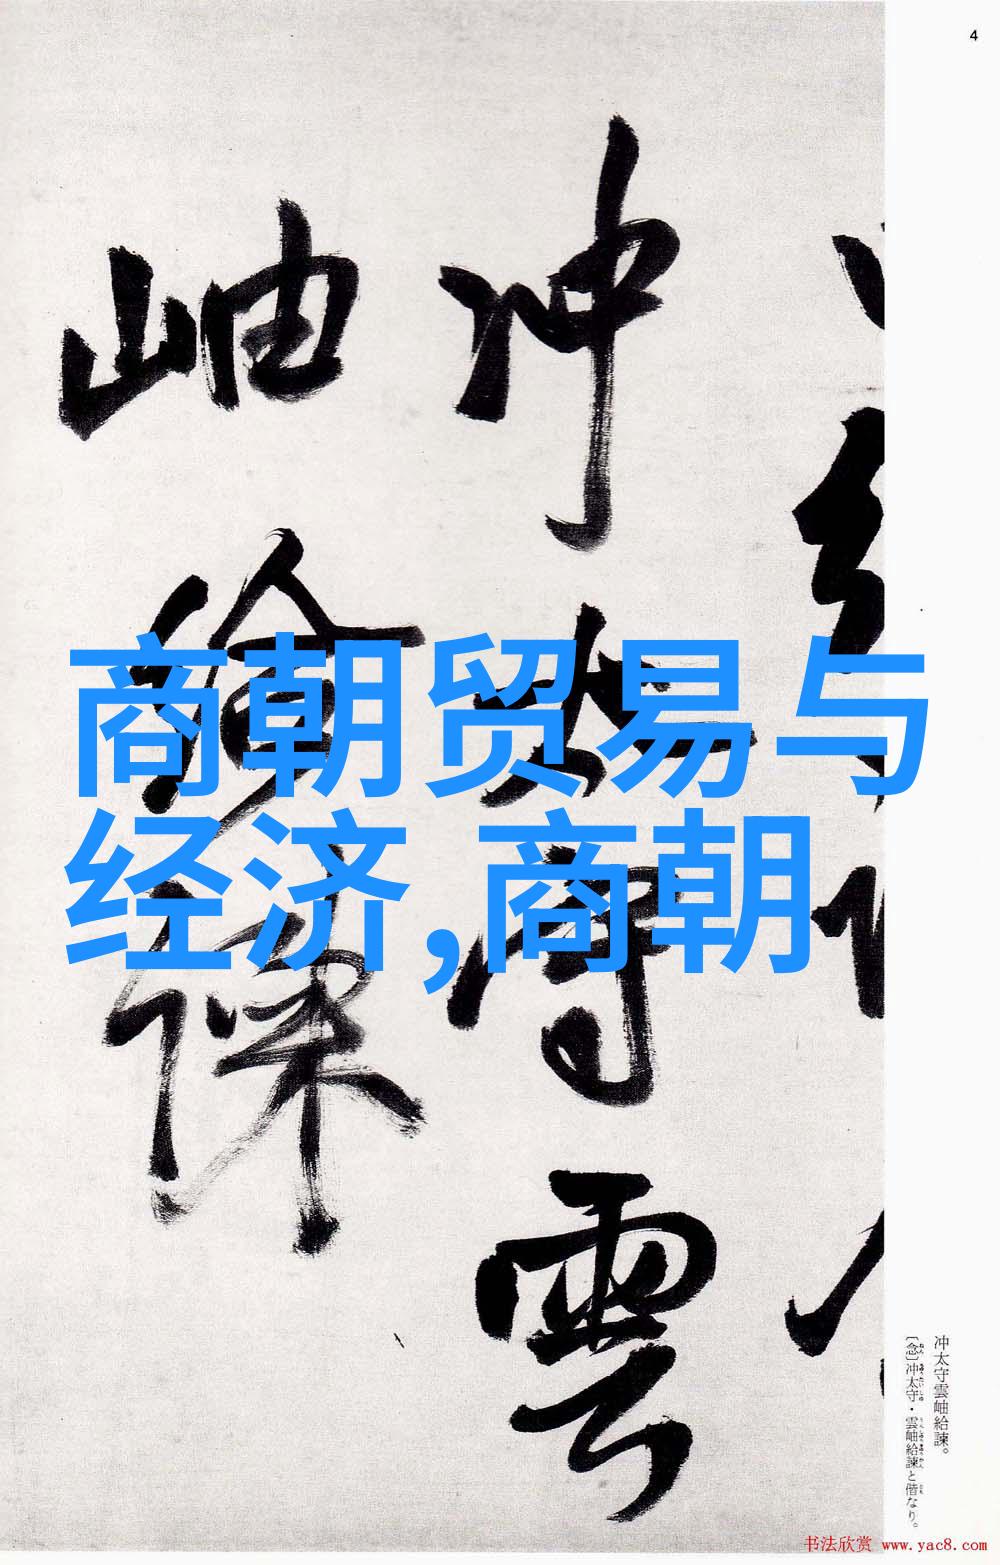 4
冲太守雲
岫給諫
商朝贸易与
经济,商朝
冲太守雲岫給諫。
〔念〕冲太守・雲岫給諫と偕なり。
书法欣赏 www.yac8.com